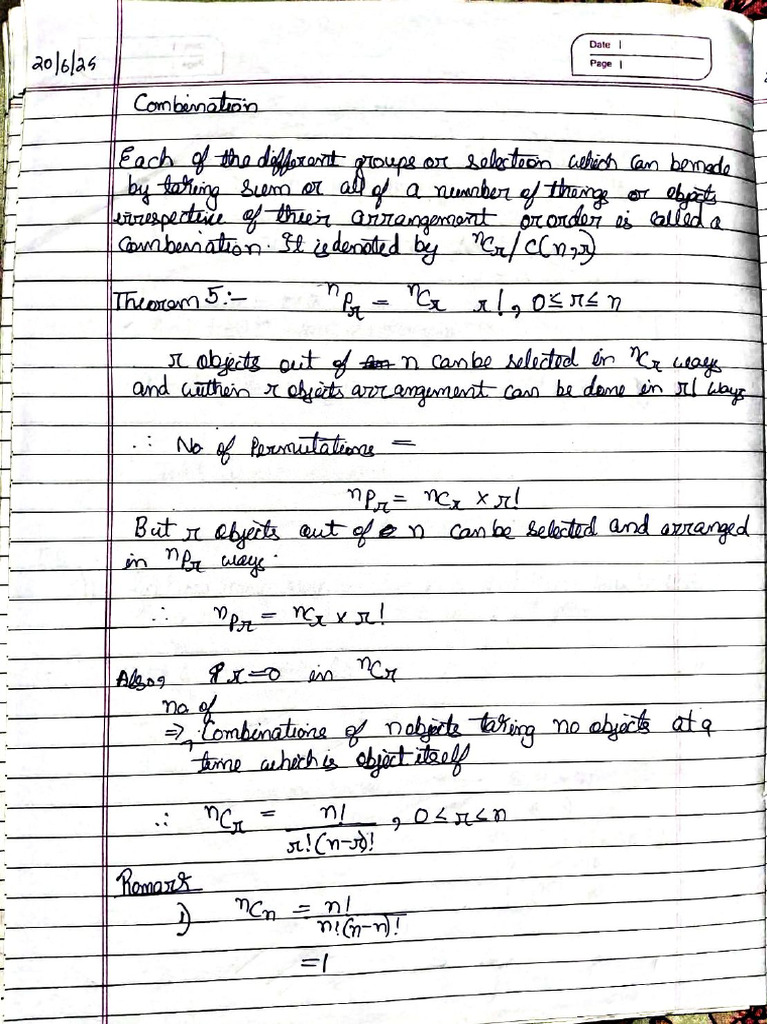 20/6/25
Date
Page
Combination
Each of the different groups or selection which can bemade
by taking sum or all of a number of things or objects
irrespective of their arrangement or order is called a
combination. It is denoted by ⁿCᵣ/C(n,r)
Theorem 5:- ⁿPᵣ = ⁿCᵣ r!, 0≤r≤n
r objects out of n can be selected in ⁿCᵣ ways
and within r objects arrangement can be done in r! ways
∴ No of Permutations =
ⁿPᵣ = ⁿCᵣ × r!
But r objects out of n can be selected and arranged
in ⁿPᵣ ways.
∴ ⁿPᵣ = ⁿCᵣ × r!
Also, r=0 in ⁿCᵣ
no of
⇒ Combinations of n objects taking no objects at a
time which is object itself
∴ ⁿCᵣ = n!/r!(n-r)! , 0<r<n
Remark
i) ⁿCₙ = n!/n!(n-n)!
=1